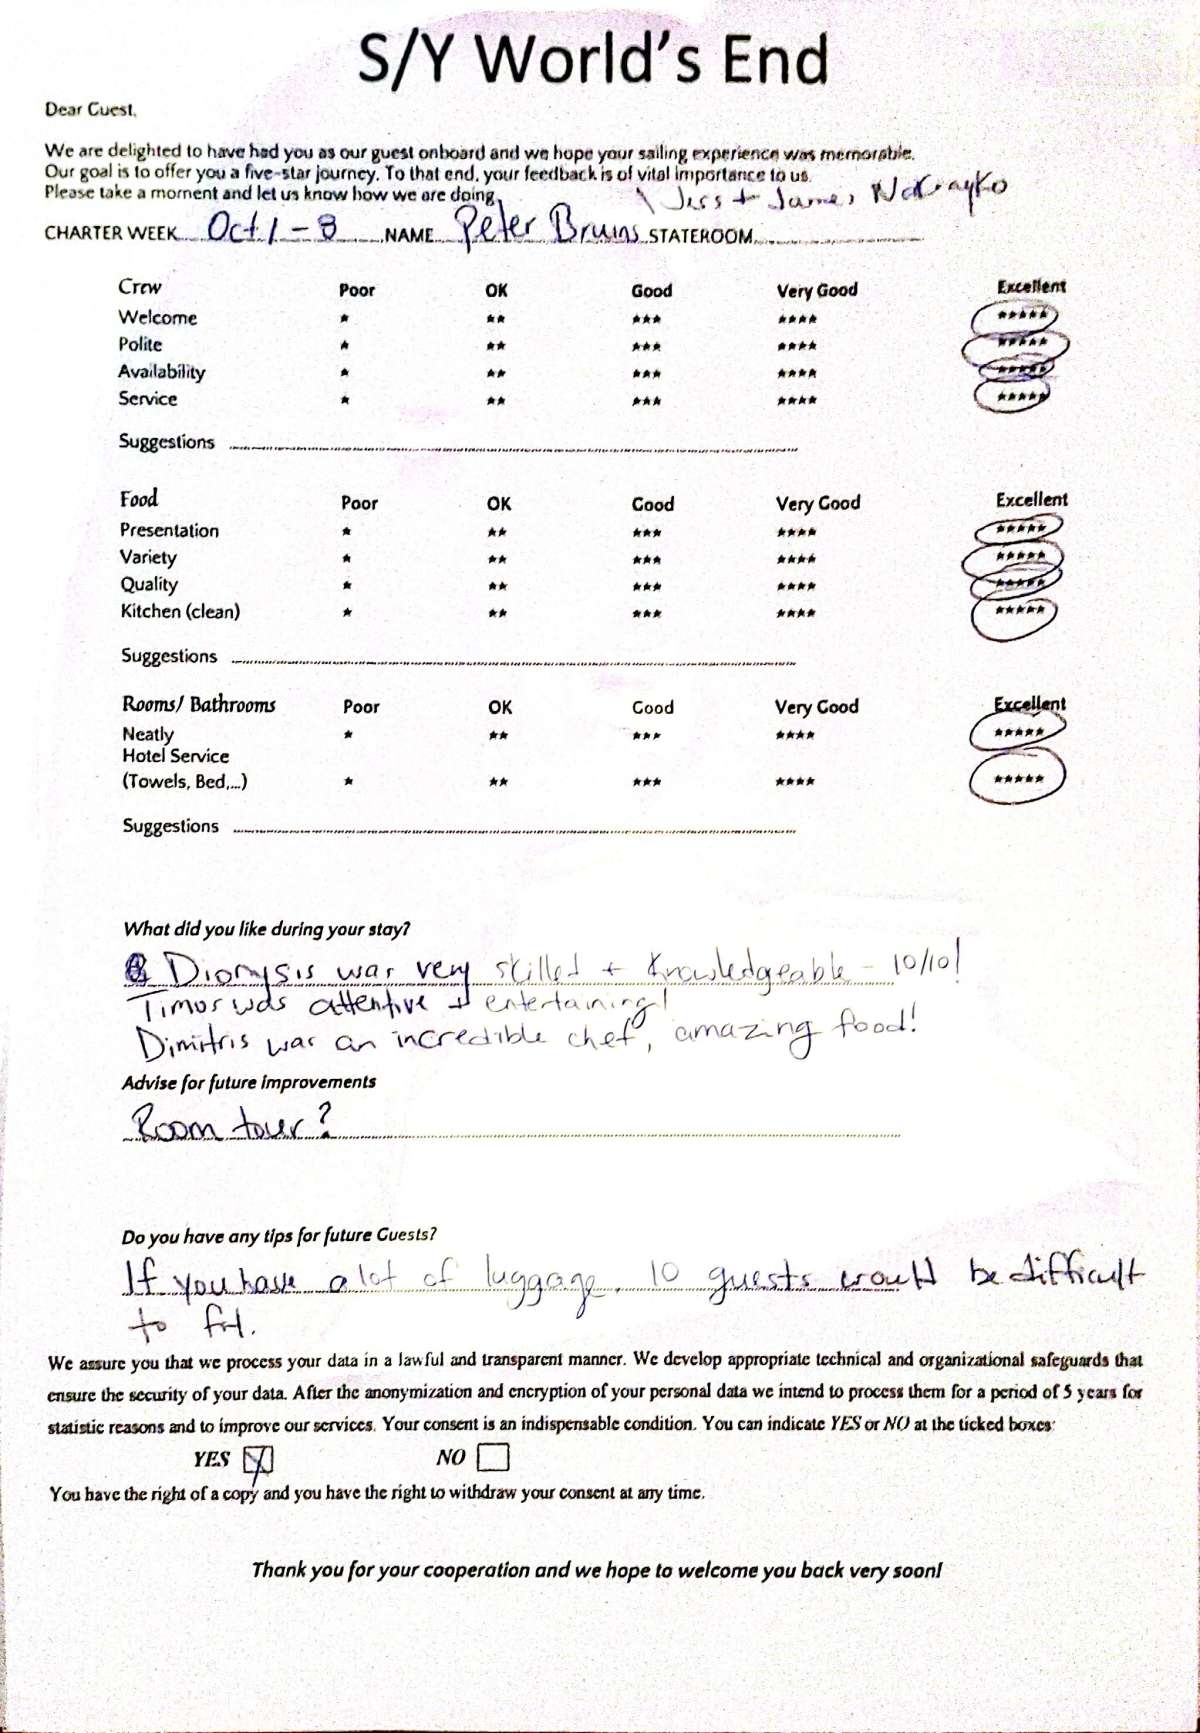 S/Y World's End
Dear Guest,
We are delighted to have had you as our guest onboard and we hope your sailing experience was memorable.
Our goal is to offer you a five-star journey. To that end, your feedback is of vital importance to us.
Please take a moment and let us know how we are doing.
\ Jess + James
CHARTER WEEK Oct 1 - 8 NAME Peter Bruins STATEROOM
Crew Poor OK Good Very Good Excellent
Welcome ★ ★★ ★★★ ★★★★ ★★★★★
Polite ★ ★★ ★★★ ★★★★ ★★★★★
Availability ★ ★★ ★★★ ★★★★ ★★★★★
Service ★ ★★ ★★★ ★★★★ ★★★★★
Suggestions
Food Poor OK Good Very Good Excellent
Presentation ★ ★★ ★★★ ★★★★ ★★★★★
Variety ★ ★★ ★★★ ★★★★ ★★★★★
Quality ★ ★★ ★★★ ★★★★ ★★★★★
Kitchen (clean) ★ ★★ ★★★ ★★★★ ★★★★★
Suggestions
Rooms/ Bathrooms Poor OK Good Very Good Excellent
Neatly ★ ★★ ★★★ ★★★★ ★★★★★
Hotel Service
(Towels, Bed,...) ★ ★★ ★★★ ★★★★ ★★★★★
Suggestions
What did you like during your stay?
Dionysis was very skilled + knowledgeable - 10/10!
Timos was attentive + entertaining!
Dimitris was an incredible chef, amazing food!
Advise for future improvements
Room tour?
Do you have any tips for future Guests?
If you have a lot of luggage, 10 guests would be difficult
to fit.
We assure you that we process your data in a lawful and transparent manner. We develop appropriate technical and organizational safeguards that
ensure the security of your data. After the anonymization and encryption of your personal data we intend to process them for a period of 5 years for
statistic reasons and to improve our services. Your consent is an indispensable condition. You can indicate YES or NO at the ticked boxes:
YES NO
You have the right of a copy and you have the right to withdraw your consent at any time.
Thank you for your cooperation and we hope to welcome you back very soon!